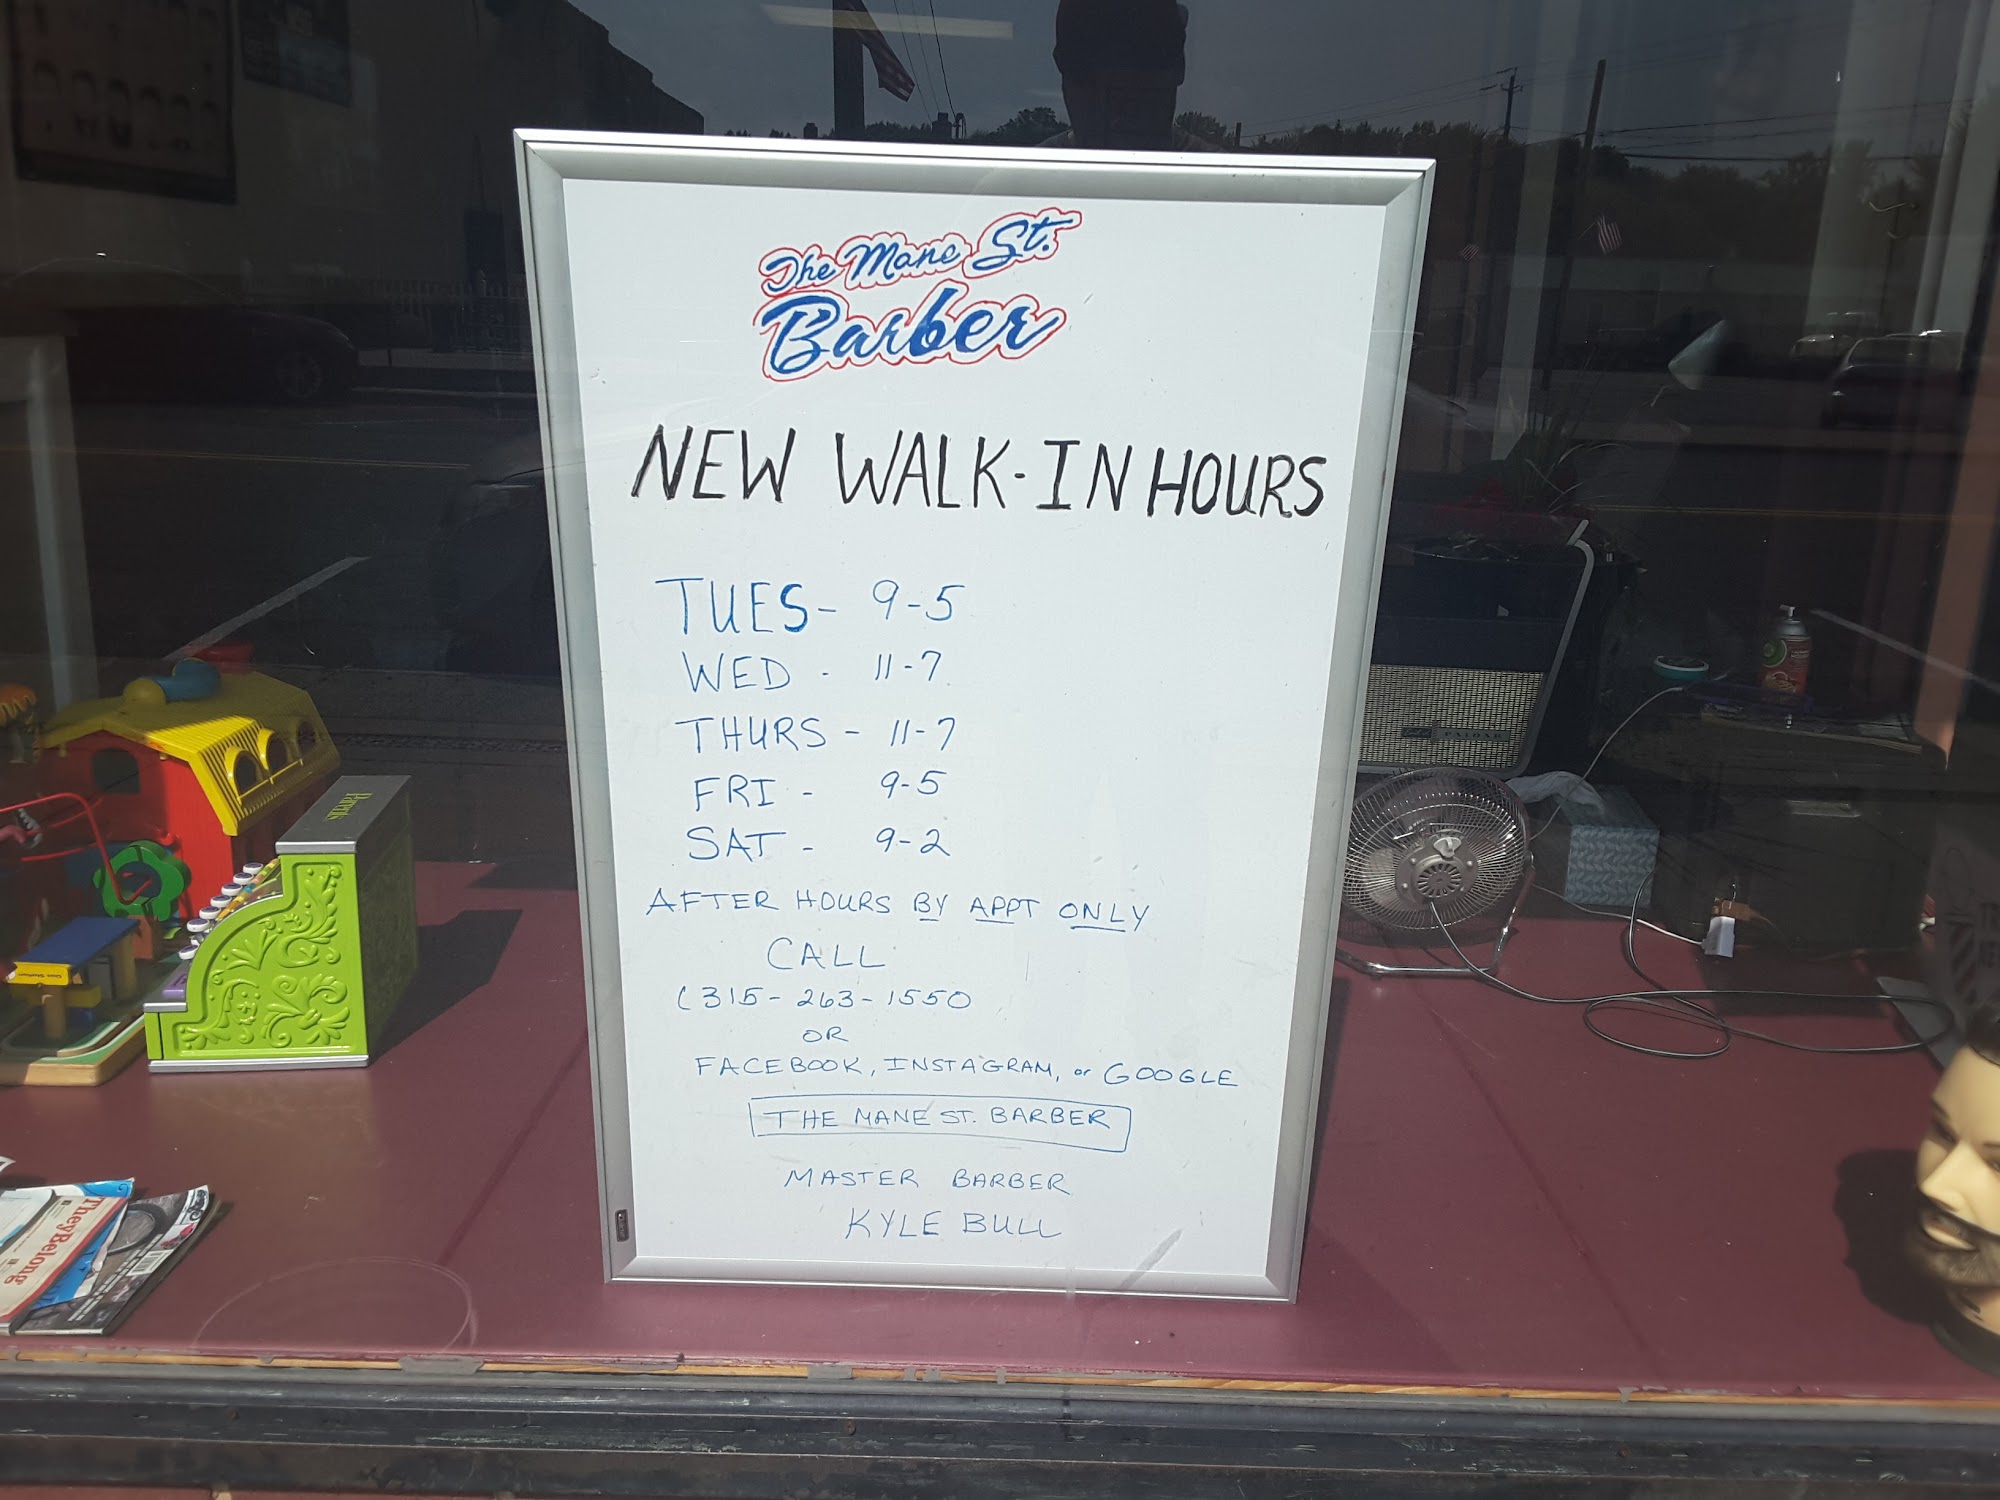 The Mane St.
Barber
NEW WALK-IN HOURS
TUES- 9-5
WED - 11-7
THURS - 11-7
FRI - 9-5
SAT - 9-2
AFTER HOURS BY APPT ONLY
CALL
(315-263-1550
OR
FACEBOOK, INSTAGRAM, or GOOGLE
THE MANE ST. BARBER
MASTER BARBER
KYLE BULL
Parents
TheyBelong